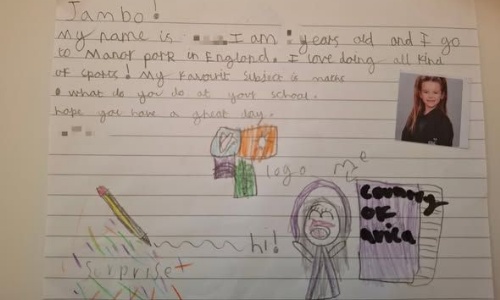 Jambo!
My name is I am years old and I go
to Manor park in England. I love doing all kind
of sports! My favourit subject is maths
what do you do at your school.
hope you have a great day.
logo
me
hi!
Surprise
Country
OF
africa